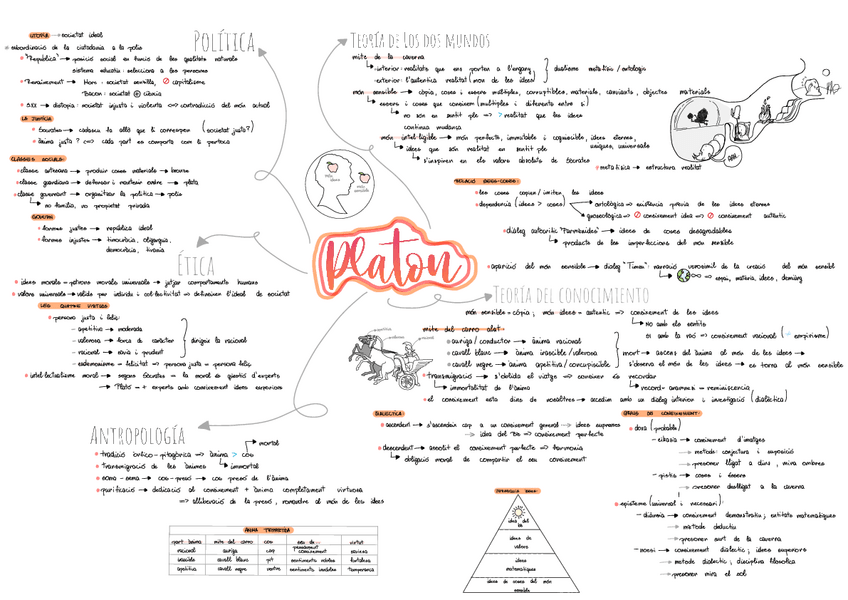 POLÍTICA
UTOPIA → societat ideal
subordinació de la ciutadania a la polis
"República" → posició social en funció de les qualitats naturals
sistema educatiu: selecciona a les persones
Renaixement → More: societat senzilla, capitalisme
Bacon: societat ciència
S.XX → distopia: societat injusta i violenta => contradicció del món actual
LA JUSTÍCIA
Sócrates → cadascú fa allò que li correspon (societat justa?)
ànima justa? <=> cada part es comporta com li pertoca
CLASSES SOCIALS:
classe artesana → produir coses materials → bronze
classe guardiana → defensar i mantenir ordre → plata
classe governant → organitzar la política → polis
no família, no propietat privada
GOVERN:
formes justes → república ideal
formes injustes → timocràcia, oligarquia,
democràcia, tirania
ÉTICA
idees morals → patrons morals universals → jutjar comportaments humans
valors universals → vàlids per individu i col·lectivitat => defineixen l'ideal de societat
LES QUATRE VIRTUTS
persona justa i feliç:
- apetitiva → moderada
- valerosa → força de caràcter
- racional → sàvia i prudent
dirigir la racional
- eudemonisme → felicitat => persona justa = persona feliç
intel·lectualisme moral → segons Sócrates → la moral és qüestió d'experts
→ Plató → + experts amb coneixement idees superiors
ANTROPOLOGÍA
mortal
tradició òrfico-pitagòrica => ànima > cos
immortal
transmigració de les ànimes
soma-sema → cos-presó → cos presó de l'ànima
purificació → dedicació al coneixement + ànima completament virtuosa
=> alliberació de la presó, romandre al món de les idees
ÀNIMA TRIPARTITA
part ànima mite del carro cos virtut
racional auriga cap coneixement saviesa
irascible cavall blanc pit sentiments nobles fortalesa
apetitiva cavall negre ventre sentiments innobles temperança
món idees
món sensible
Platon
TEORÍA DE LOS DOS MUNDOS
mite de la caverna
interior: realitats que ens porten a l'engany
exterior: l'autèntica realitat (món de les idees)
dualisme metafísic/ontològic
món sensible → còpia, coses i éssers múltiples, corruptibles, materials, canviants, objectes
éssers i coses que coneixem (múltiples i diferents entre sí)
no són en sentit ple => > realitat que les idees
continua mudança
món intel·ligible → món perfecte, immutable i cognoscible, idees eternes,
uniques, universals
idees que són realitat en sentit ple
s'inspiren en els valors absoluts de Sócrates
metafísica → estructura realitat
materials
RELACIÓ IDEES-COSES:
les coses copien/imiten les idees
dependència (idees > coses)
ontològica → existència prèvia de les idees eternes
gnoseològica => coneixement idea => coneixement autèntic
diàleg autocrític "Parmènides" → idees de coses desagradables
producte de les imperfeccions del món sensible
aparició del món sensible → diàleg "Timeu": narració versemblant de la creació del món sensible
=> espai, matèria, idees, demiürg
TEORÍA DEL CONOCIMIENTO
món sensible = còpia; món idees = autèntic => coneixement de les idees
no amb els sentits
si amb la raó => coneixement racional ( empirisme)
mite del carro alat:
auriga/conductor → ànima racional
cavall blanc → ànima irascible/valerosa
cavall negre → ànima apetitiva/concupiscible
mort → ascens de l'ànima al món de les idees →
s'observa el món de les idees → es torna al món sensible
transmigració → s'oblida el viatge => conèixer és recordar
immortalitat de l'ànima
record = anamnesi = reminiscència
el coneixement està dins de nosaltres → accedim amb un diàleg interior i investigació (dialèctica)
DIALÈCTICA:
ascendent → s'ascendeix cap a un coneixement general → idees supremes
→ idea del Bé => coneixement perfecte
descendent → assolit el coneixement perfecte → harmonia
obligació moral de compartir el seu coneixement
GRAUS DE CONEIXEMENT:
doxa (probable)
- eikasia → coneixement d'imatges
→ mètode: conjectura i suposició
→ presoner lligat a dins, mira ombres
- pistis → coses i éssers
→ presoner deslligat a la caverna
episteme (universal i necessari):
- diànoia → coneixement demonstratiu; entitats matemàtiques
→ mètode deductiu
→ presoner surt de la caverna
- noesi → coneixement dialèctic; idees superiors
→ mètode dialèctic; disciplina filosòfica
→ presoner mira el sol
idea del bé
idees de valors
idees matemàtiques
idees de coses del món sensible